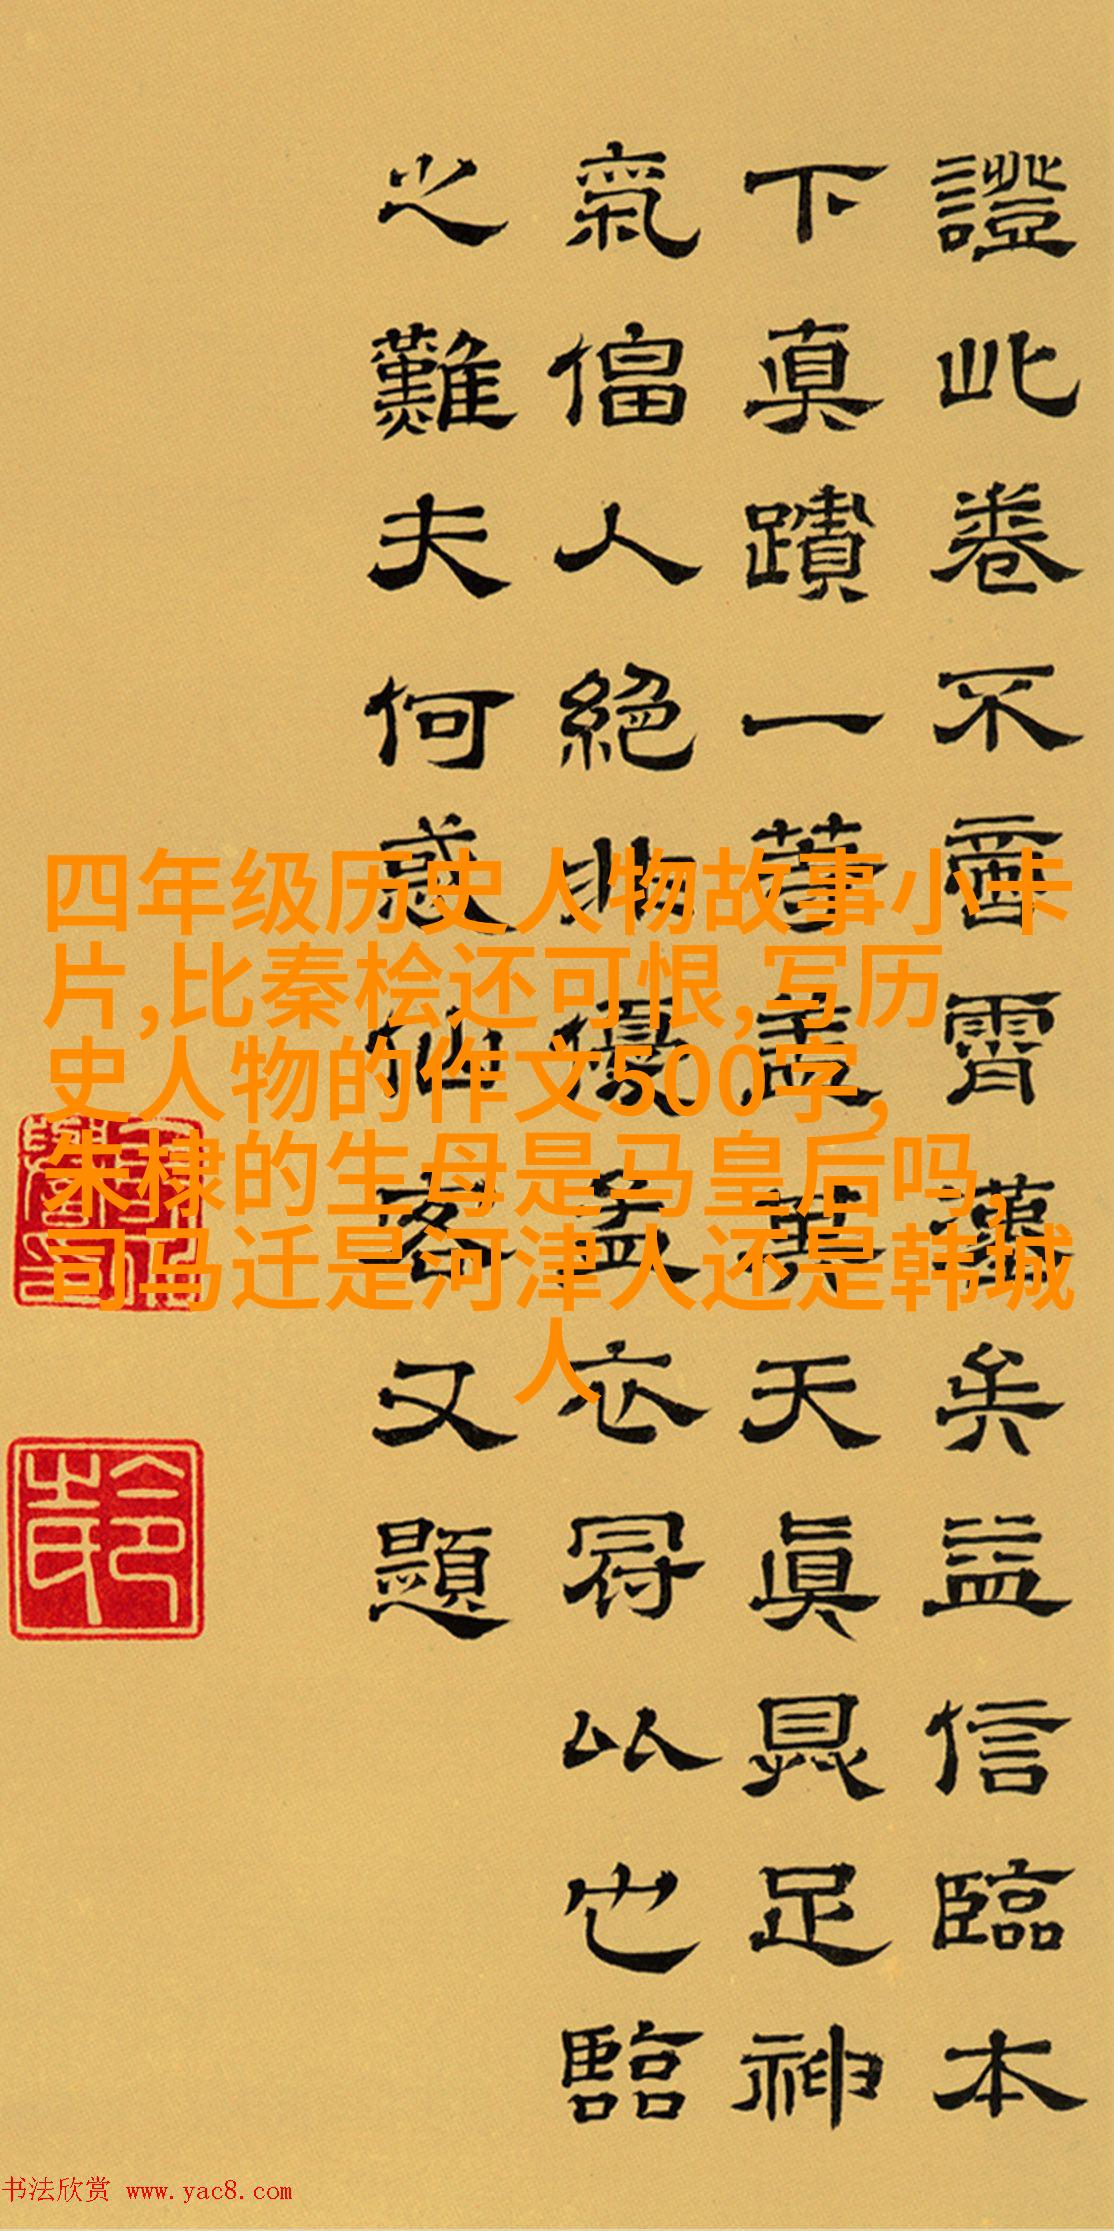 證此卷不啻霄壤矣益信臨本
下真蹟一等蓋其天真具足神
氣偪人絕非優孟衣冠以也臨
之難夫何惑仙客又題
四年级历史人物故事小卡
片,比秦桧还可恨,写历
史人物的作文500字,
朱棣的生母是马皇后吗,
司马迁是河津人还是韩城
人
书法欣赏 www.yac8.com